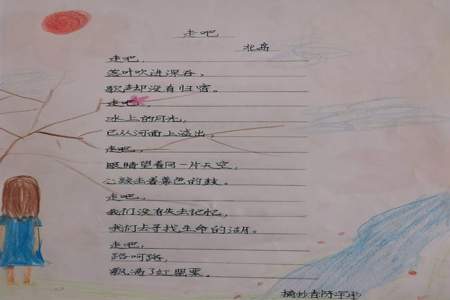 走吧
北岛
走吧,
落叶吹进深谷,
歌声却没有归宿。
走吧,
冰上的月光,
已从河面上溢出。
走吧,
眼睛望着同一片天空,
心敲击着暮色的鼓。
走吧,
我们没有失去记忆,
我们去寻找生命的湖。
走吧,
路呵路,
飘满了红罂粟。
摘抄者